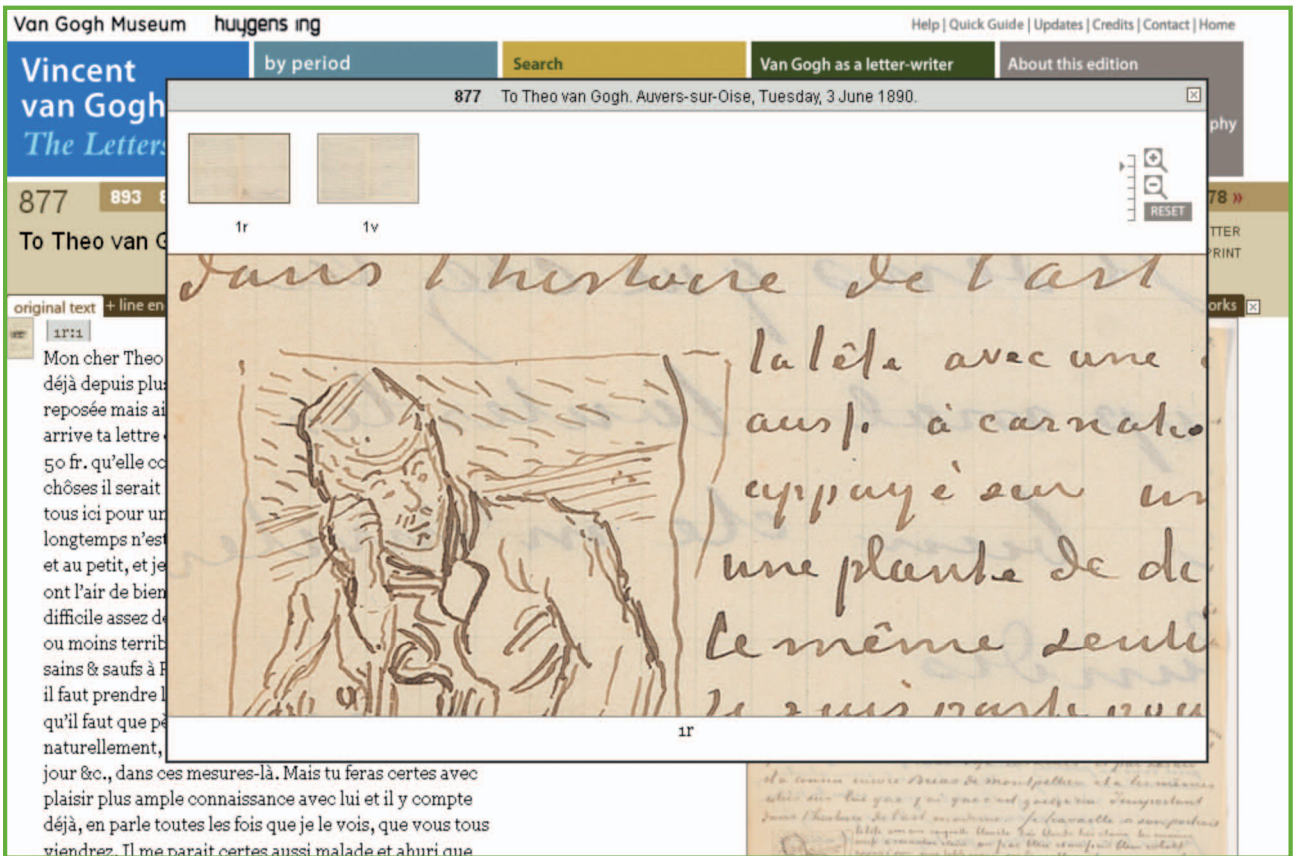 Van Gogh Museum huygens ing
Help | Quick Guide | Updates | Credits | Contact | Home
Vincent
van Gogh
The Letters
by period
Search
Van Gogh as a letter-writer
About this edition
phy
877 To Theo van Gogh. Auvers-sur-Oise, Tuesday, 3 June 1890.
1r 1v
RESET
877 893 78 »
To Theo van G
TTER
PRINT
original text + line en
orks
1r:1
Mon cher Theo
déjà depuis plus
reposée mais ai
arrive ta lettre
50 fr. qu'elle co
chôses il serait
tous ici pour un
longtemps n'est
et au petit, et je
ont l'air de bien
difficile assez de
ou moins terrib
sains & saufs à P
il faut prendre l
qu'il faut que pè
naturellement,
jour &c., dans ces mesures-là. Mais tu feras certes avec
plaisir plus ample connaissance avec lui et il y compte
déjà, en parle toutes les fois que je le vois, que vous tous
viendrez. Il me parait certes aussi malade et ahuri que
dans l'histoire de l'art
la tête avec une
aussi à carnatio
appuyé sur un
une plante de di
le même senti
Je suis parti pour
1r
dans l'histoire de l'art moderne. Je travaille a son portrait